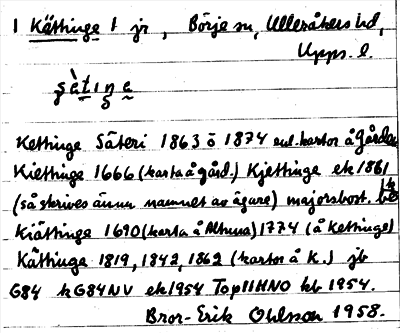 1 Kättinge 1 jr, Börje sn, Ulleråkers hd,
Upps. l.
Kettinge Säteri 1863 o 1874 enl. kartor å gården
Kiettinge 1666 (karta å gård.) Kjettinge ek 1861
(så skrives ännu namnet av ägare) majorsbost.
Kiättinge 1690 (karta å Altuna) 1774 (å Kettinge)
Kättinge 1819, 1842, 1862 (kartor å K.) jb
G84 kG84NV ek 1954 Top11HNO kb 1954.
Bror-Erik Ohlsson 1958.